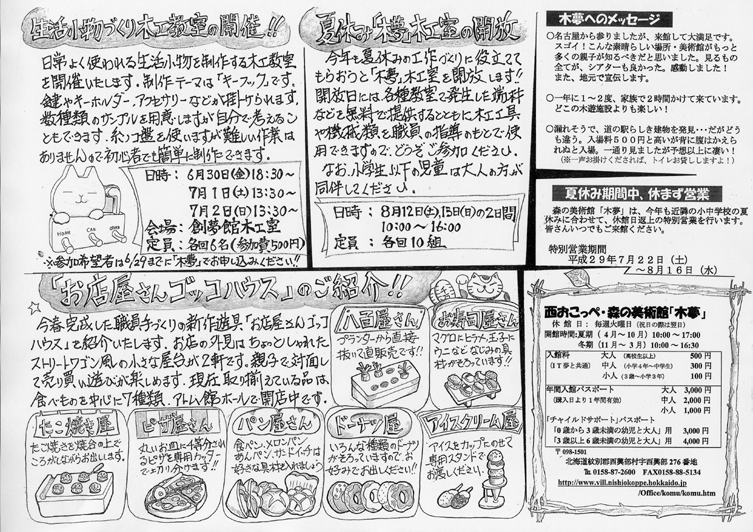 生活小物づくり木工教室の開催!!
日常よく使われる生活小物を制作する木工教室
を開催いたします。制作テーマは「キーフック」です。
鍵やキーホルダー、アクセサリーなどが掛けられます。
数種類のサンプルを用意しますが自分で考えるこ
ともできます。糸ノコ盤を使いますが難しい作業は
ありませんので初心者でも簡単に制作できます。
日時: 6月30日(金)18:30~
7月1日(土)13:30~
7月2日(日)13:30~
会場: 創夢館木工室
定員: 各回6名(参加費500円)
※参加希望者は6/29までに「木夢」でお申し込みください!!
夏休み「木夢」木工室の開放
今年も夏休みの工作づくりに役立てて
もらおうと「木夢」木工室を開放します!!
開放日には、各種教室で発生した端材
などを無料で提供するとともに木工工具
や機械類を職員の指導のもとで使
用できますので、どうぞご参加ください。
なお、小学生以下の児童は大人の方が
同伴してください。
日時: 8月12日(土),13日(日)の2日間
10:00~16:00
定員: 各回10組
木夢へのメッセージ
○名古屋から参りましたが、来館して大満足です。
スゴイ!こんな素晴らしい場所・美術館がもっと
多くの親子が知るべきだと思いました。見るもの
全てが、シアターも良かった。感動しました!
また、地元で宣伝します。
○一年に1~2度、家族で2時間かけて来ています。
どこの木遊施設よりも楽しい!
○漏れそうで、道の駅らしき建物を発見・・だがどう
も違う。入場料500円と高いが背に腹はかえら
れぬと入場。一通り見ましたが予想以上に凄い!
(※一声お掛けくだされば、トイレお貸ししますよ!)
夏休み期間中、休まず営業
森の美術館「木夢」は、今年も近隣の小中学校の夏
休みに合わせて、休館日返上の特別営業を行います。
皆さんいつでもご来館ください。
特別営業期間
平成29年7月22日(土)
~8月16日(水)
「お店屋さんゴッコハウス」のご紹介!!
今春、完成した職員手づくりの新作遊具「お店屋さんゴッコ
ハウス」を紹介いたします。お店の外見はちょっとしゃれた
ストリートワゴン風の小さな屋台が2軒です。親子で対面し
て売り買い遊びが楽しめます。現在、取り揃えている品は
食べものを中心に7種類、アトム館ホールで開店中です。
八百屋さん
プランターから直接
抜いて直販売です!!
お寿司屋さん
マグロにヒラメ、玉子に
ウニなどなじみの具
材がそろっています!!
たこ焼き屋
たこ焼きを焼台の上で
ころがしながらお出しします。
ピザ屋さん
丸いお皿に4等分され
るピザを専用カッター
でキリ分けます!!
パン屋さん
食パン、メロンパン
あんパン、サンドイッチは
好きな具材を入れましょう
ドーナツ屋
いろんな種類のドーナツ
がそろっていますので、お
好みでお出しください!!
アイスクリーム屋
アイスをカップにのせて
専用スタンドで
お渡しください。
西おこっぺ・森の美術館「木夢」
休館日: 毎週火曜日(祝日の際は翌日)
開館時間:夏期(4月~10月)10:00~17:00
冬期(11月~3月)10:00~16:30
入館料 大人(高校生以上) 500円
(IT夢と共通) 中人(小学4年~中学生) 300円
小人(3歳~小学3年) 100円
年間入館パスポート 大人 3,000円
(購入日より1年間有効) 中人 2,000円
小人 1,000円
「チャイルドサポート」パスポート
「0歳から3歳未満の幼児と大人」用 3,000円
「3歳以上6歳未満の幼児と大人」用 4,000円
〒098-1501
北海道紋別郡西興部村字西興部276番地
℡ 0158-87-2600 FAX0158-88-5134
http://www.vill.nishiokoppe.hokkaido.jp
/Office/komu/komu.htm